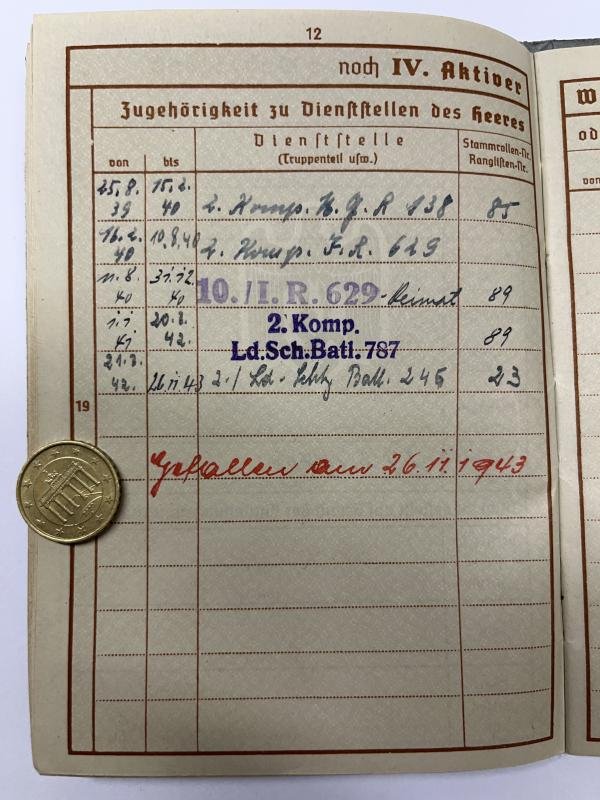 12
noch IV. Aktiver
Zugehörigkeit zu Dienststellen des Heeres
von bis Dienststelle (Truppenteil usw.) Stammrollen-Nr. Ranglisten-Nr.
25.8. 39 15.2. 40 2. Komp. 138 85
16.2. 40 10.8.40 2. Komp. J.R. 629
11.8. 40 31.12. 40 10./I.R. 629 - Heimat 89
1.1. 41 20.3. 42. 2. Komp. Ld.Sch.Batl. 787 89
21.3. 42. 26.11.43 2./ Ld.-Schtz. Batl. 245 23
19
Gefallen am 26.11.1943
W
od
von